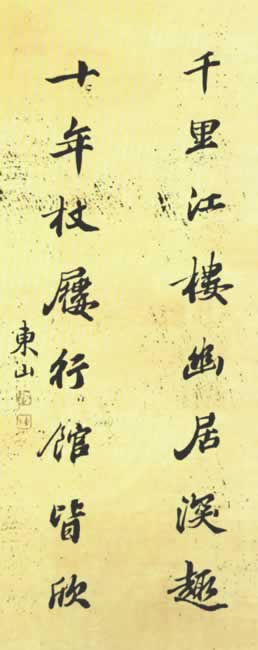 千里江樓幽居深趣
十年杖屨行館皆欣
東山